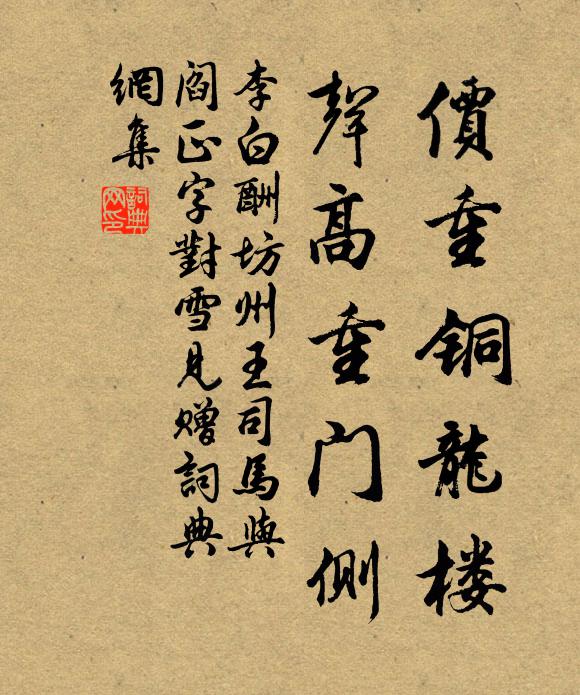 價重銅龍楼
聲高重門側
李白酬坊州王司馬與
閻正字對雪見贈詞典
網集
詞典
网印